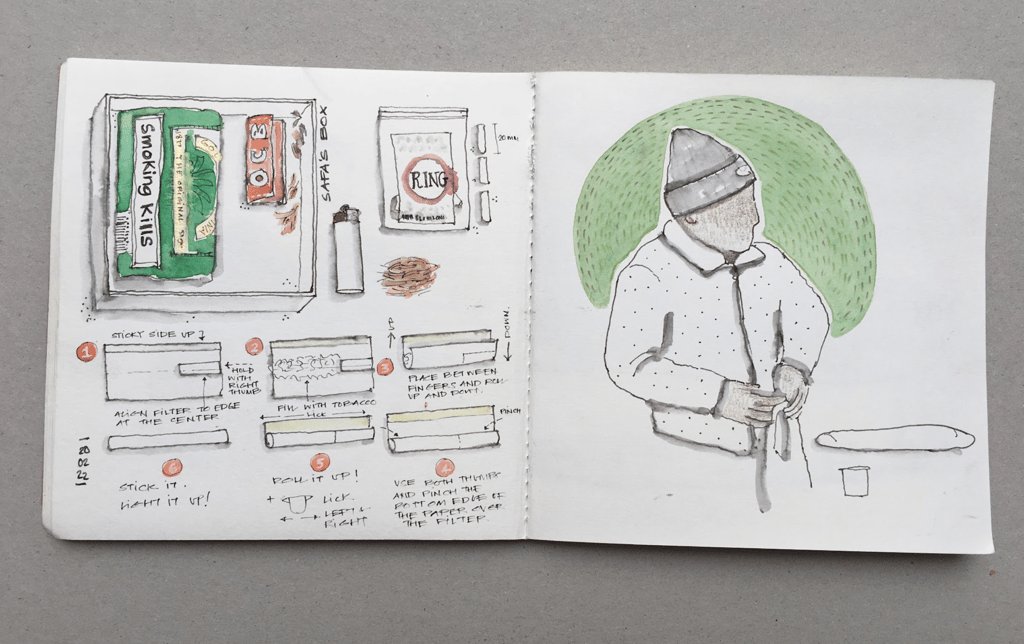 Smoking Kills
THE ORIGINAL
OCB
SAFA'S BOX
RING
20 MM
1
STICKY SIDE UP
HOLD
WITH
RIGHT
THUMB
ALIGN FILTER TO EDGE
AT THE CENTER
2
FILL WITH TOBACCO
3
UP
DOWN.
PLACE BETWEEN
FINGERS AND ROLL
UP AND DOWN.
4
PINCH
USE BOTH THUMBS
AND PINCH THE
BOTTOM EDGE OF
THE PAPER OVER
THE FILTER.
5
LICK
ROLL IT UP!
+ LICK.
LEFT &
RIGHT
6
STICK IT.
LIGHT IT UP!
20
02
22